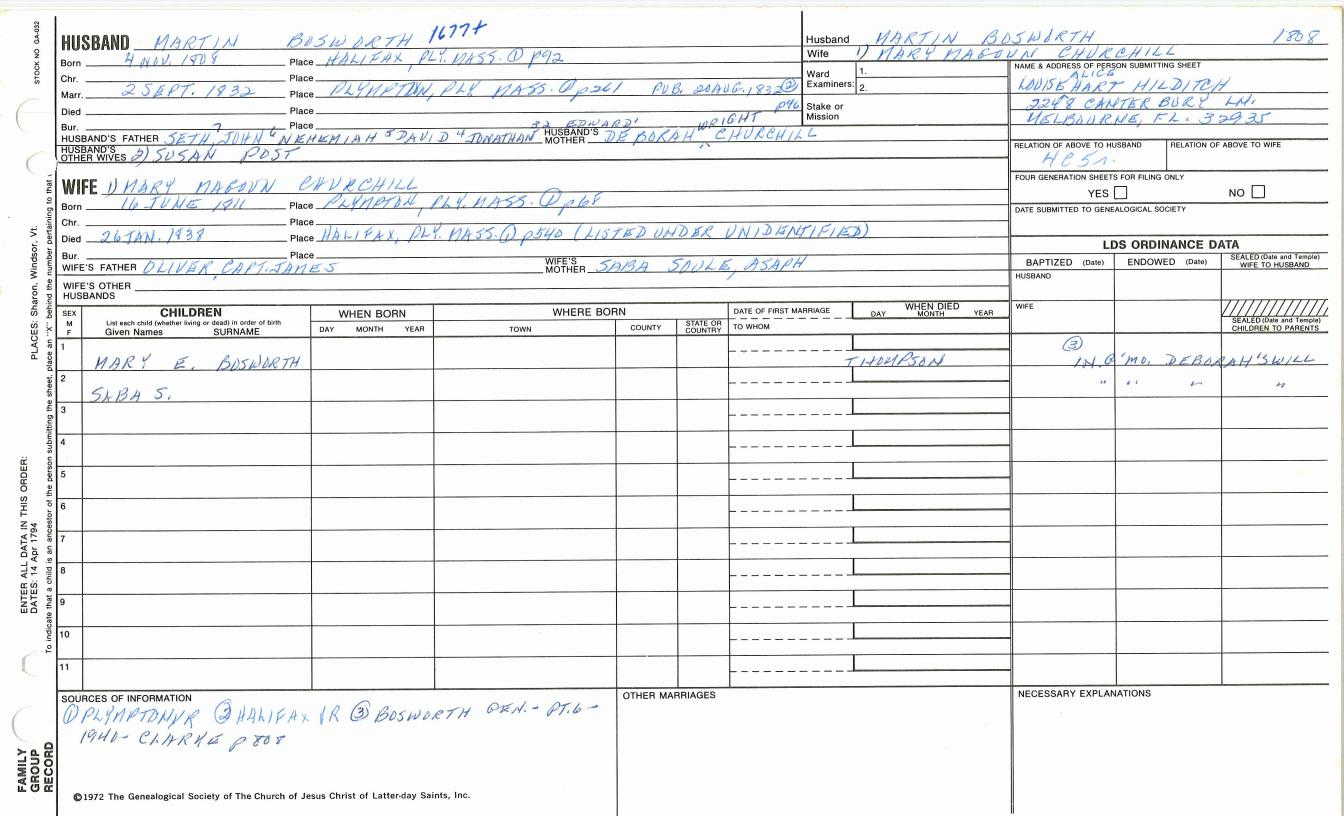 STOCK NO GA-032
HUSBAND MARTIN BOSWORTH 1677+
Born 4 NOV. 1808 Place HALIFAX, PLY. MASS. ① p92
Chr. Place
Marr. 2 SEPT. 1832 Place PLYMPTON, PLY MASS. ① p261 PUB. 20 AUG. 1832 ② p46
Died Place
Bur. Place
HUSBAND'S FATHER SETH, 7 JOHN 6 NEHEMIAH 5 DAVID 4 JONATHAN 32 EDWARD 1 HUSBAND'S MOTHER DEBORAH ^ WRIGHT CHURCHILL
HUSBAND'S OTHER WIVES 2) SUSAN POST
WIFE 1) MARY MAGOUN CHURCHILL
Born 16 JUNE 1811 Place PLYMPTON, PLY. MASS. ① p68
Chr. Place
Died 26 JAN. 1838 Place HALIFAX, PLY. MASS. ① p540 (LISTED UNDER UNIDENTIFIED)
Bur. Place
WIFE'S FATHER OLIVER, CAPT. JAMES WIFE'S MOTHER SABA SOULE, ASAPH
WIFE'S OTHER HUSBANDS
Husband MARTIN BOSWORTH 1808
Wife 1) MARY MAGOUN CHURCHILL
Ward Examiners: 1.
2.
Stake or Mission
NAME & ADDRESS OF PERSON SUBMITTING SHEET
ALICE
LOUISE HART HILDITCH
2248 CANTERBURY LN.
MELBOURNE, FL. 32935
RELATION OF ABOVE TO HUSBAND RELATION OF ABOVE TO WIFE
4C5r.
FOUR GENERATION SHEETS FOR FILING ONLY
YES NO
DATE SUBMITTED TO GENEALOGICAL SOCIETY
LDS ORDINANCE DATA
BAPTIZED (Date) ENDOWED (Date) SEALED (Date and Temple) WIFE TO HUSBAND
HUSBAND
WIFE
SEALED (Date and Temple) CHILDREN TO PARENTS
SEX M F CHILDREN WHEN BORN WHERE BORN DATE OF FIRST MARRIAGE WHEN DIED
List each child (whether living or dead) in order of birth
Given Names SURNAME DAY MONTH YEAR TOWN COUNTY STATE OR COUNTRY TO WHOM DAY MONTH YEAR
1 MARY E. BOSWORTH THOMPSON ③ IN G'MO. DEBORAH'S WILL
2 SABA S. " " " "
3
4
5
6
7
8
9
10
11
SOURCES OF INFORMATION
① PLYMPTON VR ② HALIFAX VR ③ BOSWORTH GEN. - PT. 6 -
1940 - CLARKE p 808
OTHER MARRIAGES
NECESSARY EXPLANATIONS
©1972 The Genealogical Society of The Church of Jesus Christ of Latter-day Saints, Inc.
FAMILY GROUP RECORD
ENTER ALL DATA IN THIS ORDER:
DATES: 14 Apr 1794
PLACES: Sharon, Windsor, Vt.
To indicate that a child is an ancestor of the person submitting the sheet, place an "X" behind the number pertaining to that